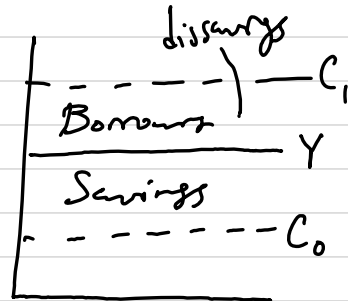 dissavings
C1
Borrows
Y
Savings
C0